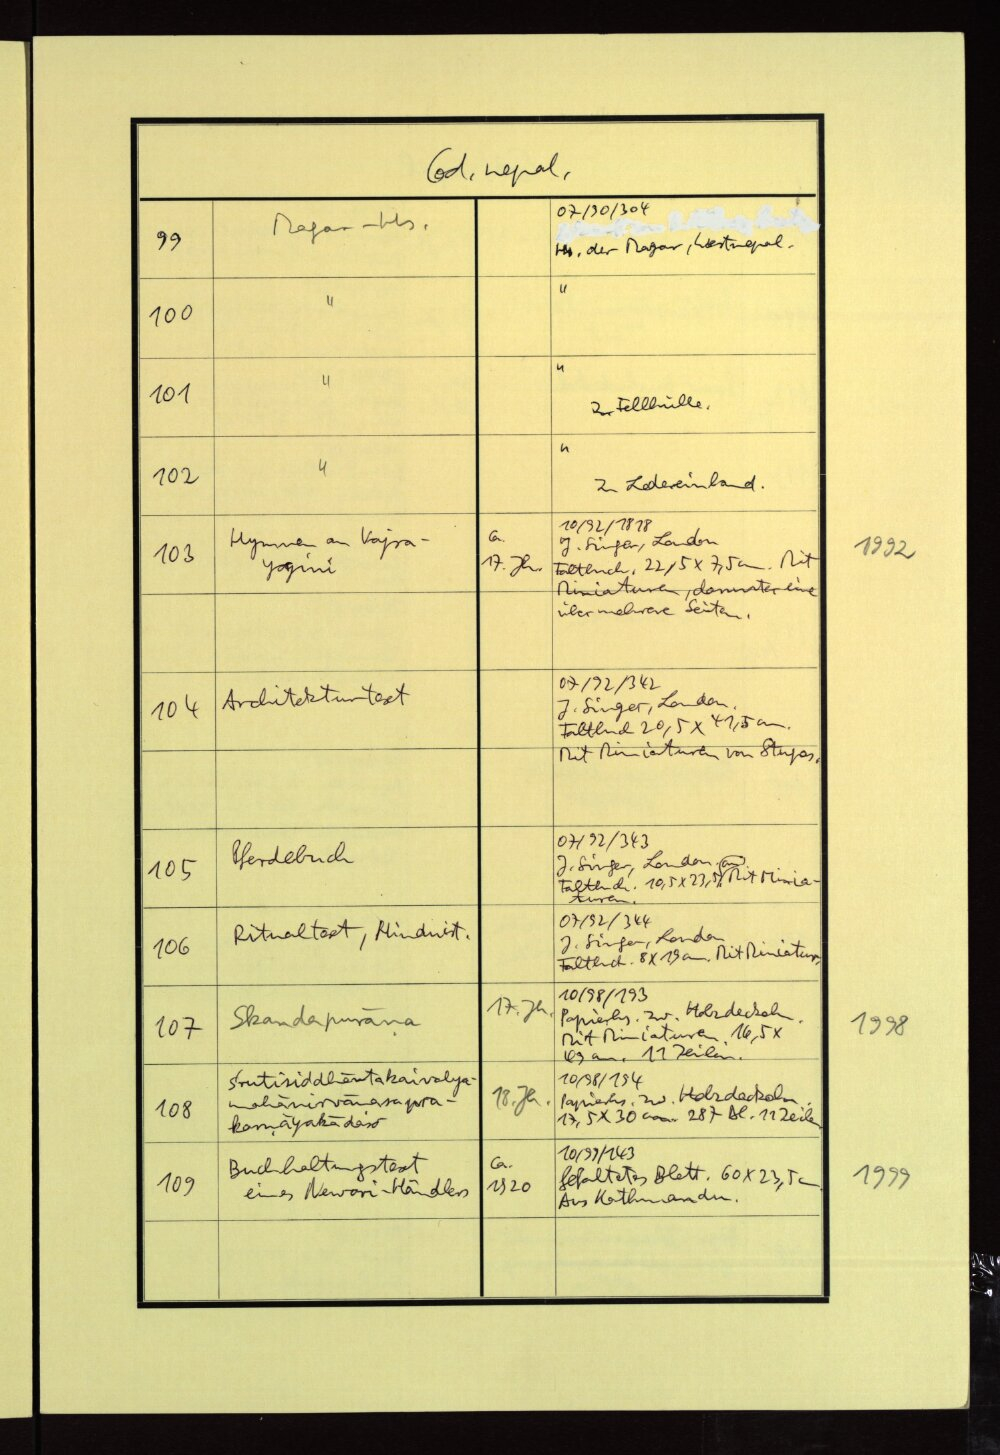 Cod. nepal.
99
Magar-Hs.
07/90/304
Hs. der Magar, Westnepal.
100
"
"
101
"
"
In Fellhülle.
102
"
"
In Ledereinband.
103
Hymnen an Vajra-
yoginī
ca.
17. Jh.
10/92/1818
J. Singer, London
Faltbuch. 22,5 x 7,5 cm. Mit
Miniaturen, darunter eine
über mehrere Seiten.
1992
104
Architekturtext
07/92/342
J. Singer, London.
Faltbuch 20,5 x 41,5 cm.
Mit Miniaturen von Stupas.
105
Pferdebuch
07/92/343
J. Singer, London. cm
Faltbuch. 10,5 x 23,5. Mit Minia-
turen.
106
Ritualtext, Hinduist.
07/92/344
J. Singer, London
Faltbuch. 8 x 19 cm. Mit Miniaturen
107
Skandapurāṇa
17. Jh.
10/98/193
Papierhs. zw. Holzdeckeln.
Mit Miniaturen. 16,5 x
49 cm. 11 Zeilen.
1998
108
18. Jh.
10/98/194
Papierhs. zw. Holzdeckeln.
17,5 x 30 cm. 287 Bl. 11 Zeilen
109
Buchhaltungstext
eines Newari-Händlers
ca.
1920
10/99/143
Gefaltetes Blatt. 60 x 23,5 cm
Aus Kathmandu.
1999